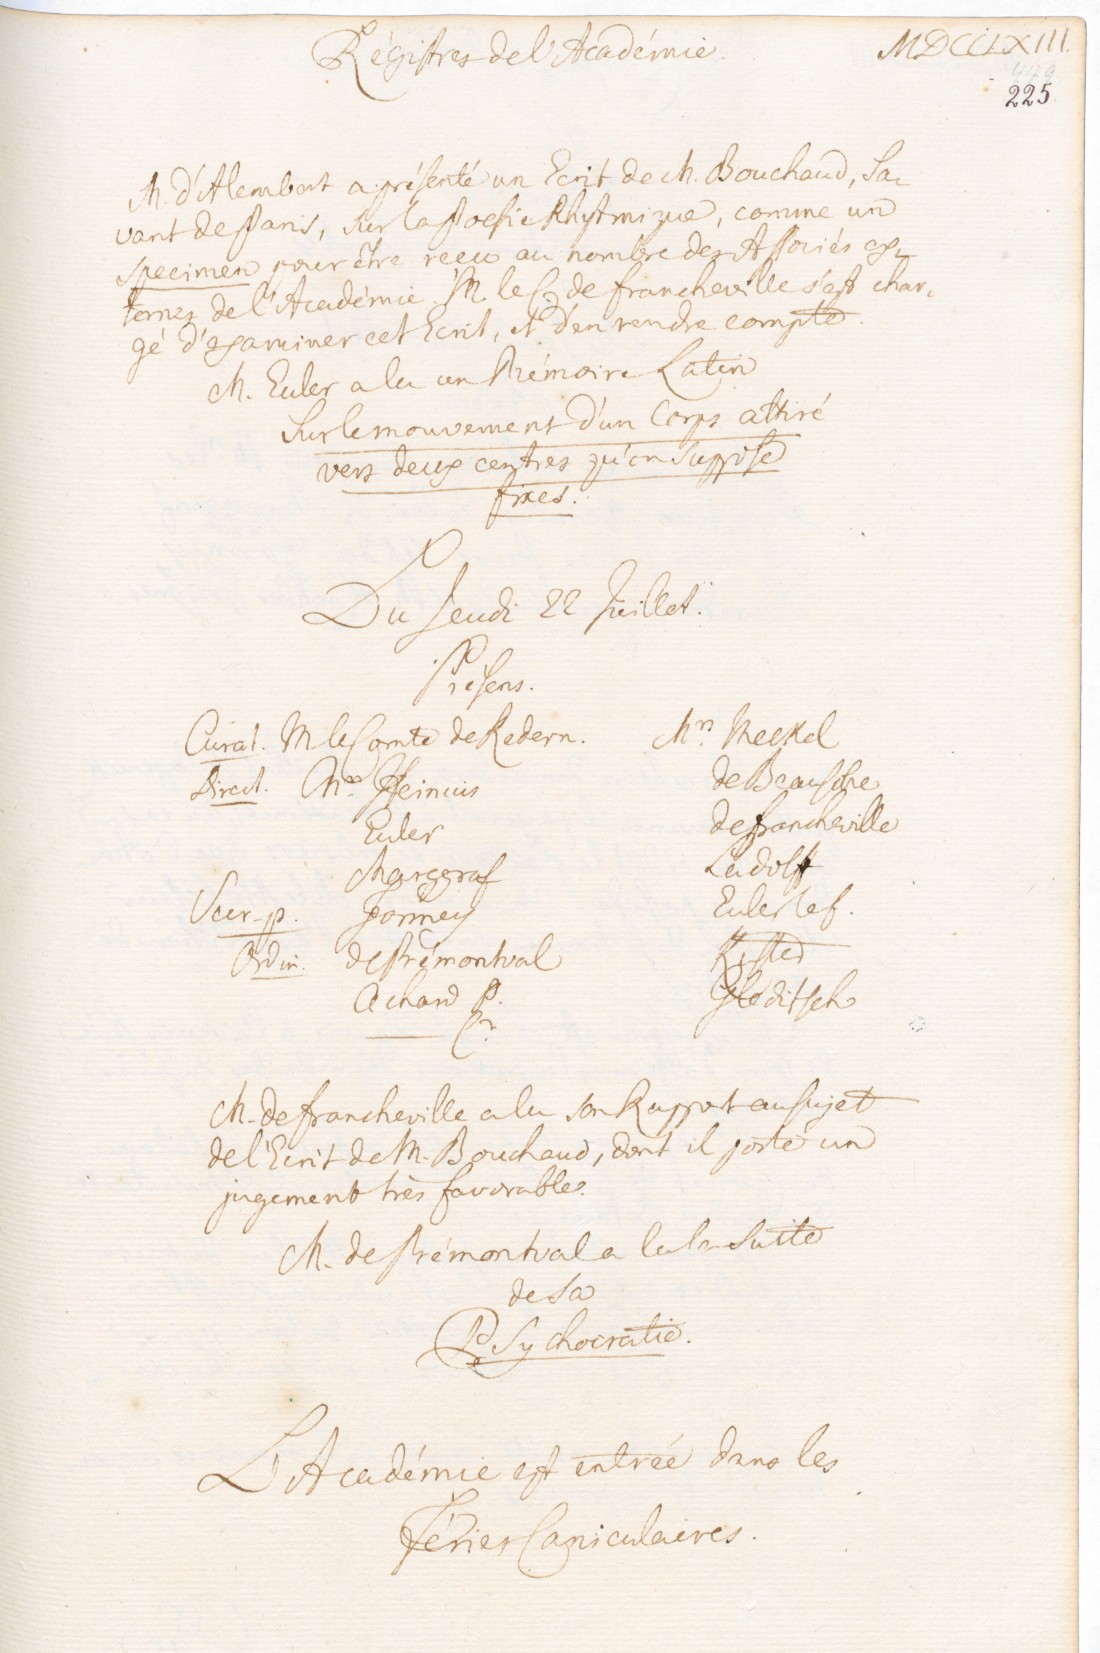 Régistres de l'Académie.
MDCCLXIII.
225.
M. d'Alembert a présenté un Ecrit de M. Bouchaud, Sa-
vant de Paris, sur la Poësie Rhytmique, comme un
specimen pour être reçu au nombre des Associés ex-
ternes de l'Académie. M. le C. de Francheville s'est char-
gé d'examiner cet Ecrit, et d'en rendre compte.
M. Euler a lu un Mémoire Latin
Sur le mouvement d'un Corps attiré
vers deux centres qu'on suppose
fixes.
Du Jeudi 22 Juillet.
Présens.
Curat. M le Comte de Redern.
Direct. Mrs Heinius
Euler
Marggraf
Secr. p. Formey
Ordin. de Prémontval
Achard P.
Mrs Meckel
de Beausobre
de Francheville
Ludolff
Euler le f.
Gleditsch
M. de Francheville a lu son Rapport au sujet
de l'Ecrit de M. Bouchaud, dont il porte un
jugement très favorable.
M. de Prémontval a lu la suite
de sa
Psychocratie.
L'Académie est entrée dans les
Féries Caniculaires.